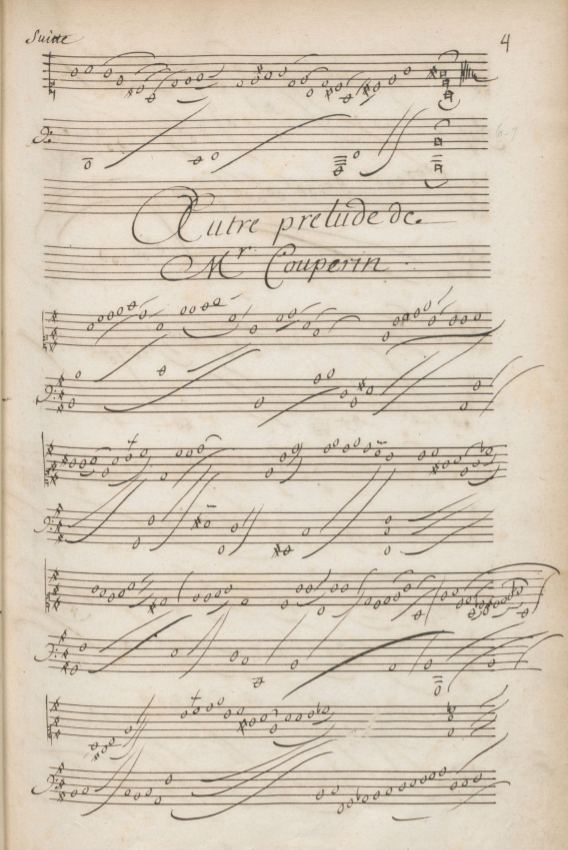 Suitte
4
Autre prelude de
Mr. Couperin.